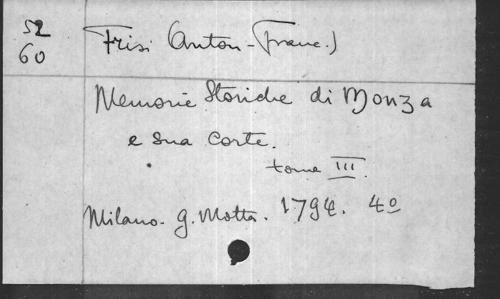 52
60
Frisi (Anton-Franc.)
Memorie Storiche di Monza
e sua corte.
tome III.
Milano. G. Motta. 1794. 4o